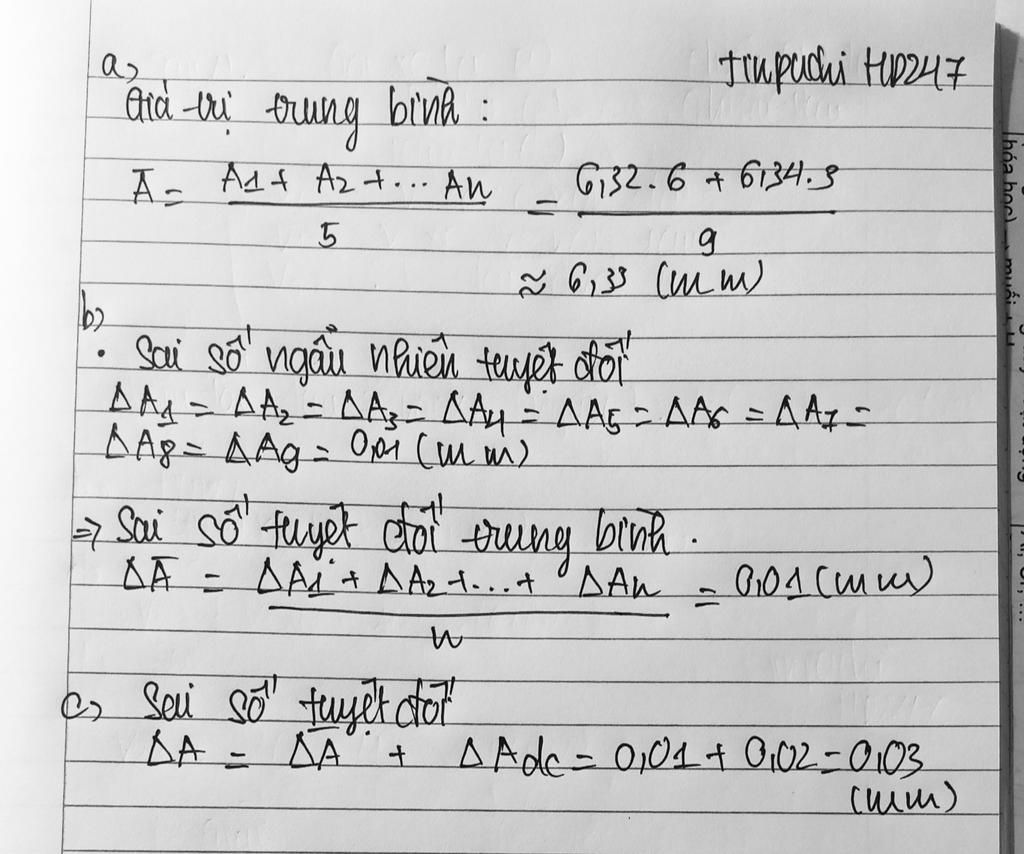 a>
tinpuchi HD247
Giá trị trung bình :
Ā = A1 + A2 + ... An / 5 = 6,32.6 + 6,34.3 / 9
≈ 6,33 (mm)
b)
• Sai số ngẫu nhiên tuyệt đối
ΔA1 = ΔA2 = ΔA3 = ΔA4 = ΔA5 = ΔA6 = ΔA7 =
ΔA8 = ΔA9 = 0,01 (mm)
=> Sai số tuyệt đối trung bình.
ΔĀ = ΔA1 + ΔA2 + ... + ΔAn / n = 0,01 (mm)
c> Sai số tuyệt đối
ΔA = ΔĀ + ΔAdc = 0,01 + 0,02 = 0,03
(mm)